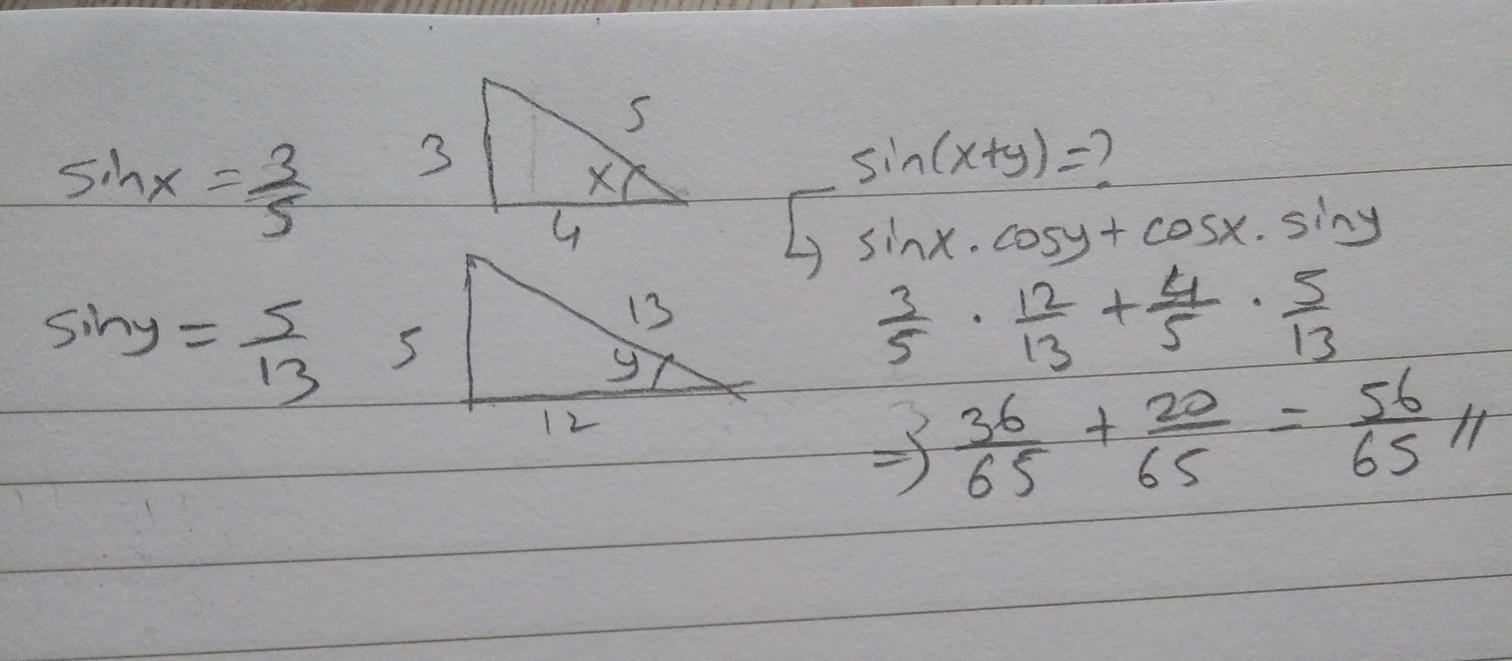 sinx = 3/5
3 5 x 4
siny = 5/13
5 13 y 12
sin(x+y)=?
↳ sinx . cosy + cosx . siny
3/5 . 12/13 + 4/5 . 5/13
=> 36/65 + 20/65 = 56/65 //